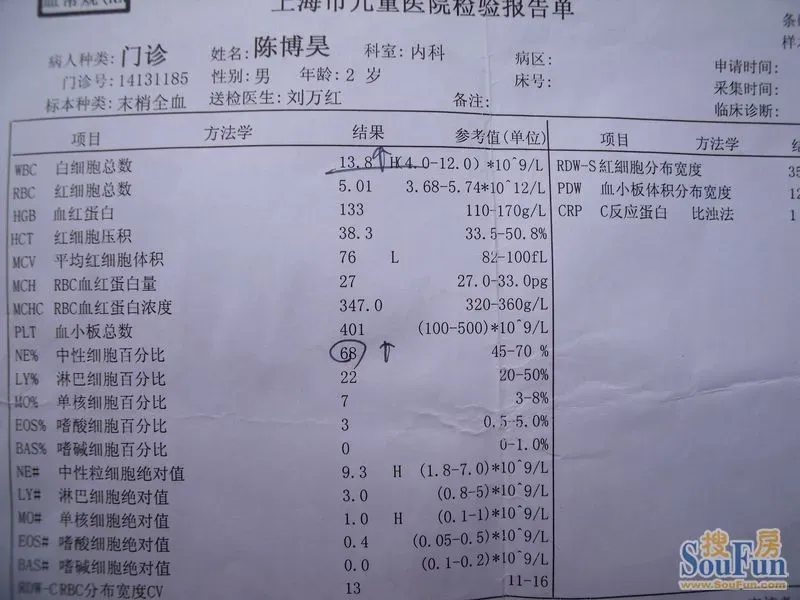 上海市儿童医院检验报告单
病人种类: 门诊 姓名: 陈博昊 科室: 内科 病区:
门诊号: 14131185 性别: 男 年龄: 2 岁 床号: 申请时间:
标本种类: 末梢全血 送检医生: 刘万红 备注: 采集时间:
临床诊断:
项目 方法学 结果 参考值(单位) 项目 方法学
WBC 白细胞总数 13.8 ↑ H (4.0-12.0)*10^9/L RDW-S 红细胞分布宽度 35
RBC 红细胞总数 5.01 3.68-5.74*10^12/L PDW 血小板体积分布宽度 12
HGB 血红蛋白 133 110-170g/L CRP C反应蛋白 比浊法 1
HCT 红细胞压积 38.3 33.5-50.8%
MCV 平均红细胞体积 76 L 82-100fL
MCH RBC血红蛋白量 27 27.0-33.0pg
MCHC RBC血红蛋白浓度 347.0 320-360g/L
PLT 血小板总数 401 (100-500)*10^9/L
NE% 中性细胞百分比 68 ↑ 45-70 %
LY% 淋巴细胞百分比 22 20-50%
MO% 单核细胞百分比 7 3-8%
EOS% 嗜酸细胞百分比 3 0.5-5.0%
BAS% 嗜碱细胞百分比 0 0-1.0%
NE# 中性粒细胞绝对值 9.3 H (1.8-7.0)*10^9/L
LY# 淋巴细胞绝对值 3.0 (0.8-5)*10^9/L
MO# 单核细胞绝对值 1.0 H (0.1-1)*10^9/L
EOS# 嗜酸细胞绝对值 0.4 (0.05-0.5)*10^9/L
BAS# 嗜碱细胞绝对值 0.0 (0.1-0.2)*10^9/L
RDW-C RBC分布宽度CV 13 11-16
搜房
SouFun
www.SouFun.com